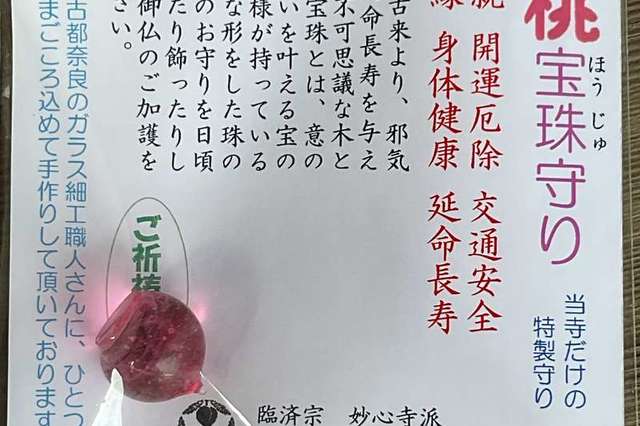 桃宝珠守り
ほうじゅ
当寺だけの
特製守り
開運厄除 交通安全
身体健康 延命長寿
古来より、邪気
命長寿を与え
不可思議な木と
宝珠とは、意の
いを叶える宝の
様が持っている
な形をした珠の
のお守りを日頃
たり飾ったりし
御仏のご加護を
さい。
ご祈
古都奈良のガラス細工職人さんに、ひとつ
まごころ込めて手作りして頂いております
臨済宗 妙心寺派